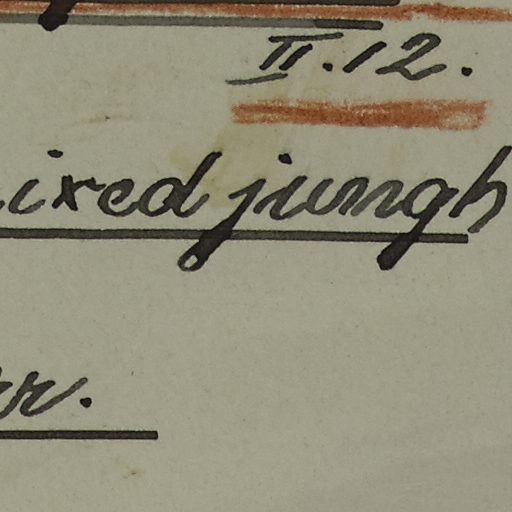 II.12.
ixed jungh
rr.